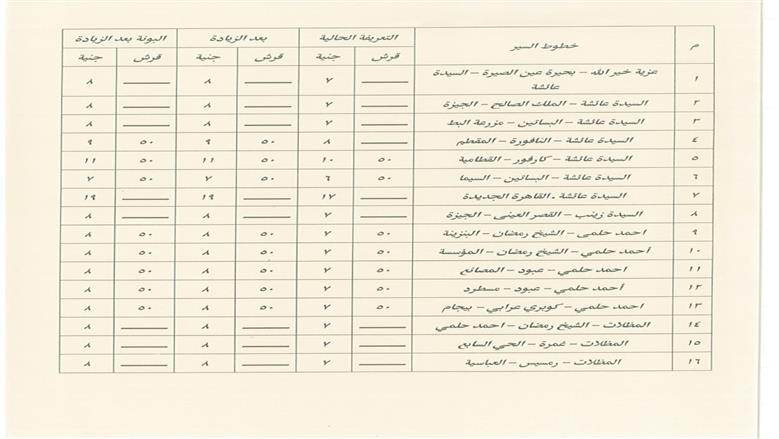 م خطوط السير التعريفة الحالية بعد الزيادة البونة بعد الزيادة
قرش جنية قرش جنية قرش جنية
١ عزبة خير الله – بحيرة عين الصيرة – السيدة عائشة ـــ ٧ ـــ ٨ ـــ ٨
٢ السيدة عائشة – الملك الصالح – الجيزة ـــ ٧ ـــ ٨ ـــ ٨
٣ السيدة عائشة – البساتين – مزرعة البط ـــ ٧ ـــ ٨ ـــ ٨
٤ السيدة عائشة – النافورة – المقطم ـــ ٨ ٥٠ ٩ ٥٠ ٩
٥ السيدة عائشة – كارفور – القطامية ٥٠ ١٠ ٥٠ ١١ ٥٠ ١١
٦ السيدة عائشة – البساتين – السيما ٥٠ ٦ ٥٠ ٧ ٥٠ ٧
٧ السيدة عائشة . القاهرة الجديدة ـــ ١٧ ـــ ١٩ ـــ ١٩
٨ السيدة زينب – القصر العينى – الجيزة ـــ ٧ ـــ ٨ ـــ ٨
٩ احمد حلمى – الشيخ رمضان – البنزينة ٥٠ ٧ ٥٠ ٨ ٥٠ ٨
١٠ أحمد حلمي – الشيخ رمضان – المؤسسة ٥٠ ٧ ٥٠ ٨ ٥٠ ٨
١١ احمد حلمي – عبود – المصانع ٥٠ ٧ ٥٠ ٨ ٥٠ ٨
١٢ أحمد حلمي – عبود – مسطرد ٥٠ ٧ ٥٠ ٨ ٥٠ ٨
١٣ احمد حلمي – كوبري عرابي – بيجام ٥٠ ٧ ٥٠ ٨ ٥٠ ٨
١٤ المظلات – الشيخ رمضان – احمد حلمي ـــ ٧ ـــ ٨ ـــ ٨
١٥ المظلات – غمرة – الحي السابع ـــ ٧ ـــ ٨ ـــ ٨
١٦ المظلات – رمسيس – العباسية ـــ ٧ ـــ ٨ ـــ ٨